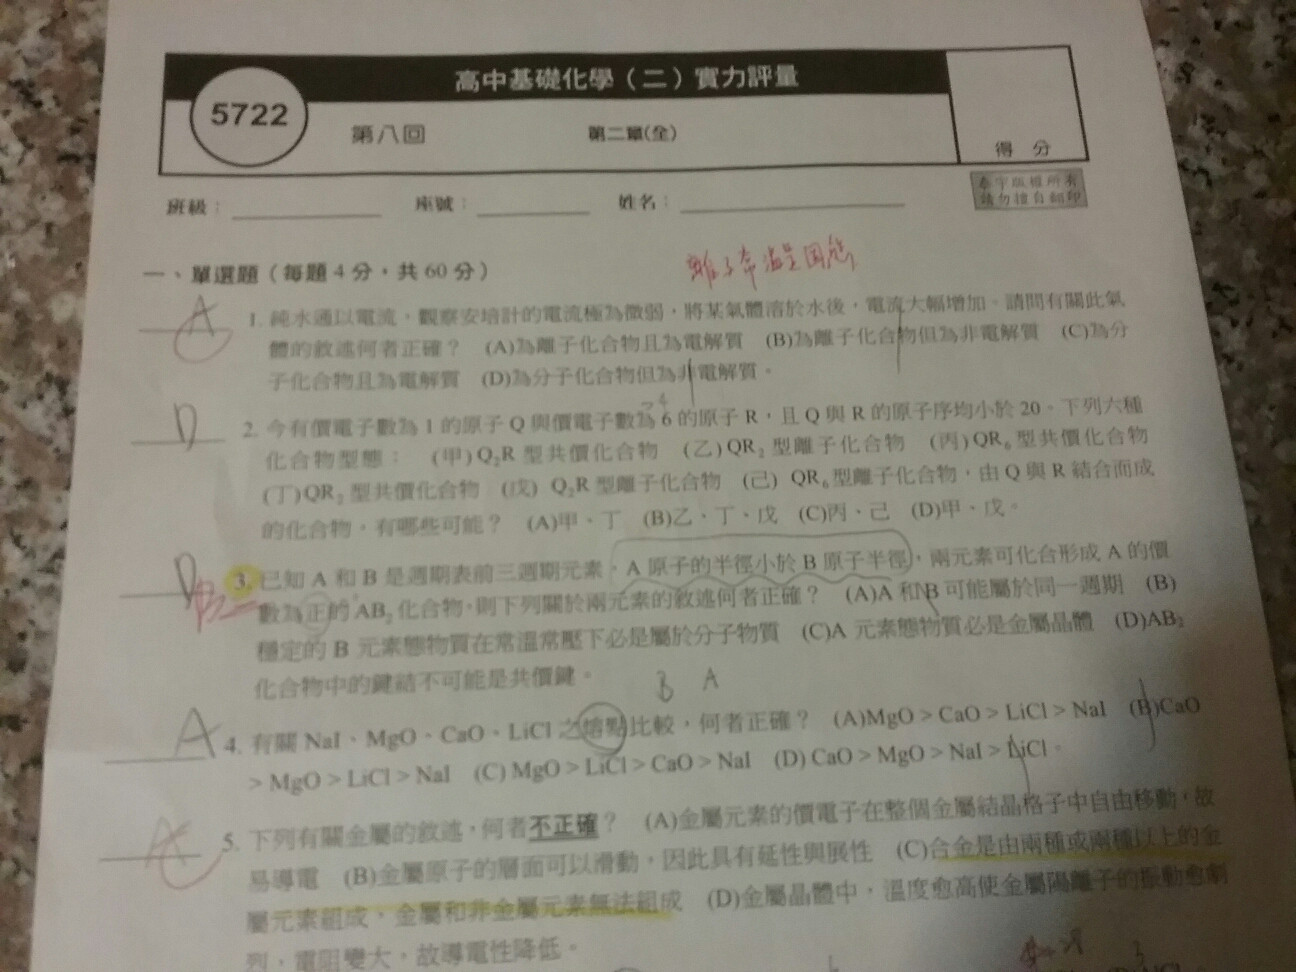 高中基礎化學（二）實力評量
5722
第八回 第二章(全)
得 分
班級： 座號： 姓名：
泰宇版權所有
請勿擅自翻印
一、單選題（每題 4 分，共 60 分）
離子
A
C
1. 純水通以電流，觀察安培計的電流極為微弱，將某氣體溶於水後，電流大幅增加。請問有關此氣
體的敘述何者正確？ (A)為離子化合物且為電解質 (B)為離子化合物但為非電解質 (C)為分
子化合物且為電解質 (D)為分子化合物但為非電解質。
D
2. 今有價電子數為 1 的原子 Q 與價電子數為 6 的原子 R，且 Q 與 R 的原子序均小於 20。下列六種
化合物型態： (甲) Q₂R 型共價化合物 (乙) QR₂ 型離子化合物 (丙) QR₆ 型共價化合物
(丁) QR₂ 型共價化合物 (戊) Q₂R 型離子化合物 (己) QR₆ 型離子化合物，由 Q 與 R 結合而成
的化合物，有哪些可能？ (A)甲、丁 (B)乙、丁、戊 (C)丙、己 (D)甲、戊。
D
B
3. 已知 A 和 B 是週期表前三週期元素，A 原子的半徑小於 B 原子半徑，兩元素可化合形成 A 的價
數為正的 AB₂ 化合物，則下列關於兩元素的敘述何者正確？ (A)A 和 B 可能屬於同一週期 (B)
穩定的 B 元素態物質在常溫常壓下必是屬於分子物質 (C)A 元素態物質必是金屬晶體 (D)AB₂
化合物中的鍵結不可能是共價鍵。
B A
A
4. 有關 NaI、MgO、CaO、LiCl 之熔點比較，何者正確？ (A)MgO > CaO > LiCl > NaI (B)CaO
> MgO > LiCl > NaI (C) MgO > LiCl > CaO > NaI (D) CaO > MgO > NaI > LiCl。
5. 下列有關金屬的敘述，何者不正確？ (A)金屬元素的價電子在整個金屬結晶格子中自由移動，故
易導電 (B)金屬原子的層面可以滑動，因此具有延性與展性 (C)合金是由兩種或兩種以上的金
屬元素組成，金屬和非金屬元素無法組成 (D)金屬晶體中，溫度愈高使金屬陽離子的振動愈劇
列，電阻變大，故導電性降低。